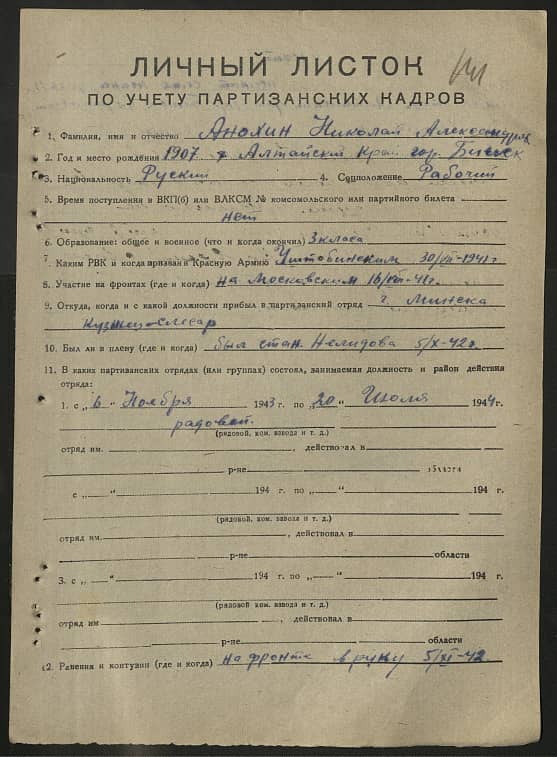 ЛИЧНЫЙ ЛИСТОК
ПО УЧЕТУ ПАРТИЗАНСКИХ КАДРОВ
1. Фамилия, имя и отчество Анохин Николай Александров
2. Год и место рождения 1907 Алтайский Край гор. Бийск
3. Национальность Руский 4. Соцположение Рабочий
5. Время поступления в ВКП(б) или ВЛКСМ № комсомольского или партийного билета
нет
6. Образование: общее и военное (что и когда окончил) 3 класа
7. Каким РВК и когда призван в Красную Армию Уштобинским 30/VII-1941г
8. Участие на фронтах (где и когда) на Московским 16/VIII-41г.
9. Откуда, когда и с какой должности прибыл в партизанский отряд г. Минска
Кузнец-слесар
10. Был ли в плену (где и когда) был стан. Нелидова 5/X-42г.
11. В каких партизанских отрядах (или группах) состоял, занимаемая должность и район действия
отряда:
1. с „6" Ноября 1943 г. по „20" Июля 1944 г.
радовой.
(рядовой, ком. взвода и т. д.)
отряд им. , действовал в
р-не области
с „ " 194 г. по „ " 194 г.
(рядовой, ком. взвода и т. д.)
отряд им. , действовал в
р-не области
3. с „ " 194 г. по „ " 194 г.
(рядовой, ком. взвода и т. д.)
отряд им , действовал в
р-не области
12. Ранения и контузии (где и когда) на фронте в руку 5/XI-42